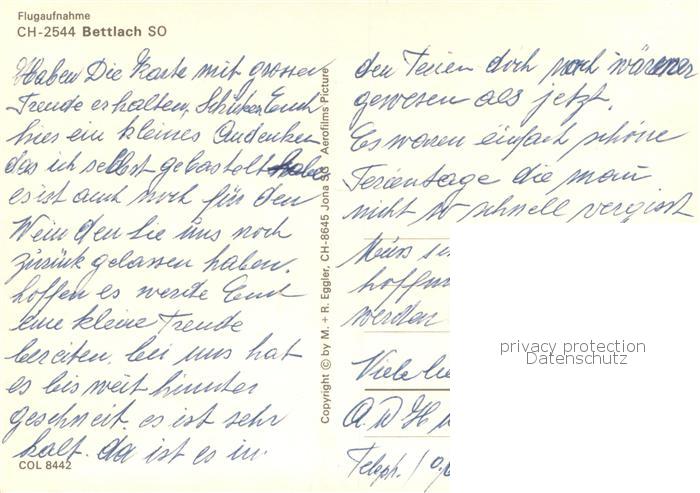 Flugaufnahme
CH-2544 Bettlach SO
Haben Die Karte mit grosser
Freude erhalten, Schicken Euch
hies ein kleines Andenken
das ich selbst gebastelt habe
es ist auch noch für den
Wein den Sie uns noch
zurück gelassen haben.
hoffen es werde Euch
eine kleine Freude
bereiten. bei uns hat
es bis weit hinunter
geschneit. es ist sehr
kalt. da ist es in
COL 8442
Copyright © by M. + R. Eggler, CH-8645 Jona SG Aerofilms Picture
den Ferien doch noch wärmer
gewesen als jetzt.
Es waren einfach schöne
Ferientage die man
nicht so schnell vergisst
Muss
hoffen
werden
Viele
A. D H
Teleph. /
privacy protection
Datenschutz